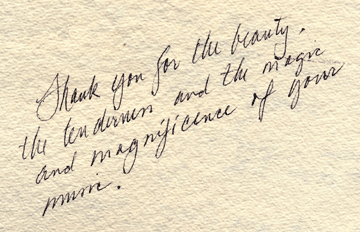 Thank you for the beauty,
the tenderness and the magic
and magnificence of your
music.